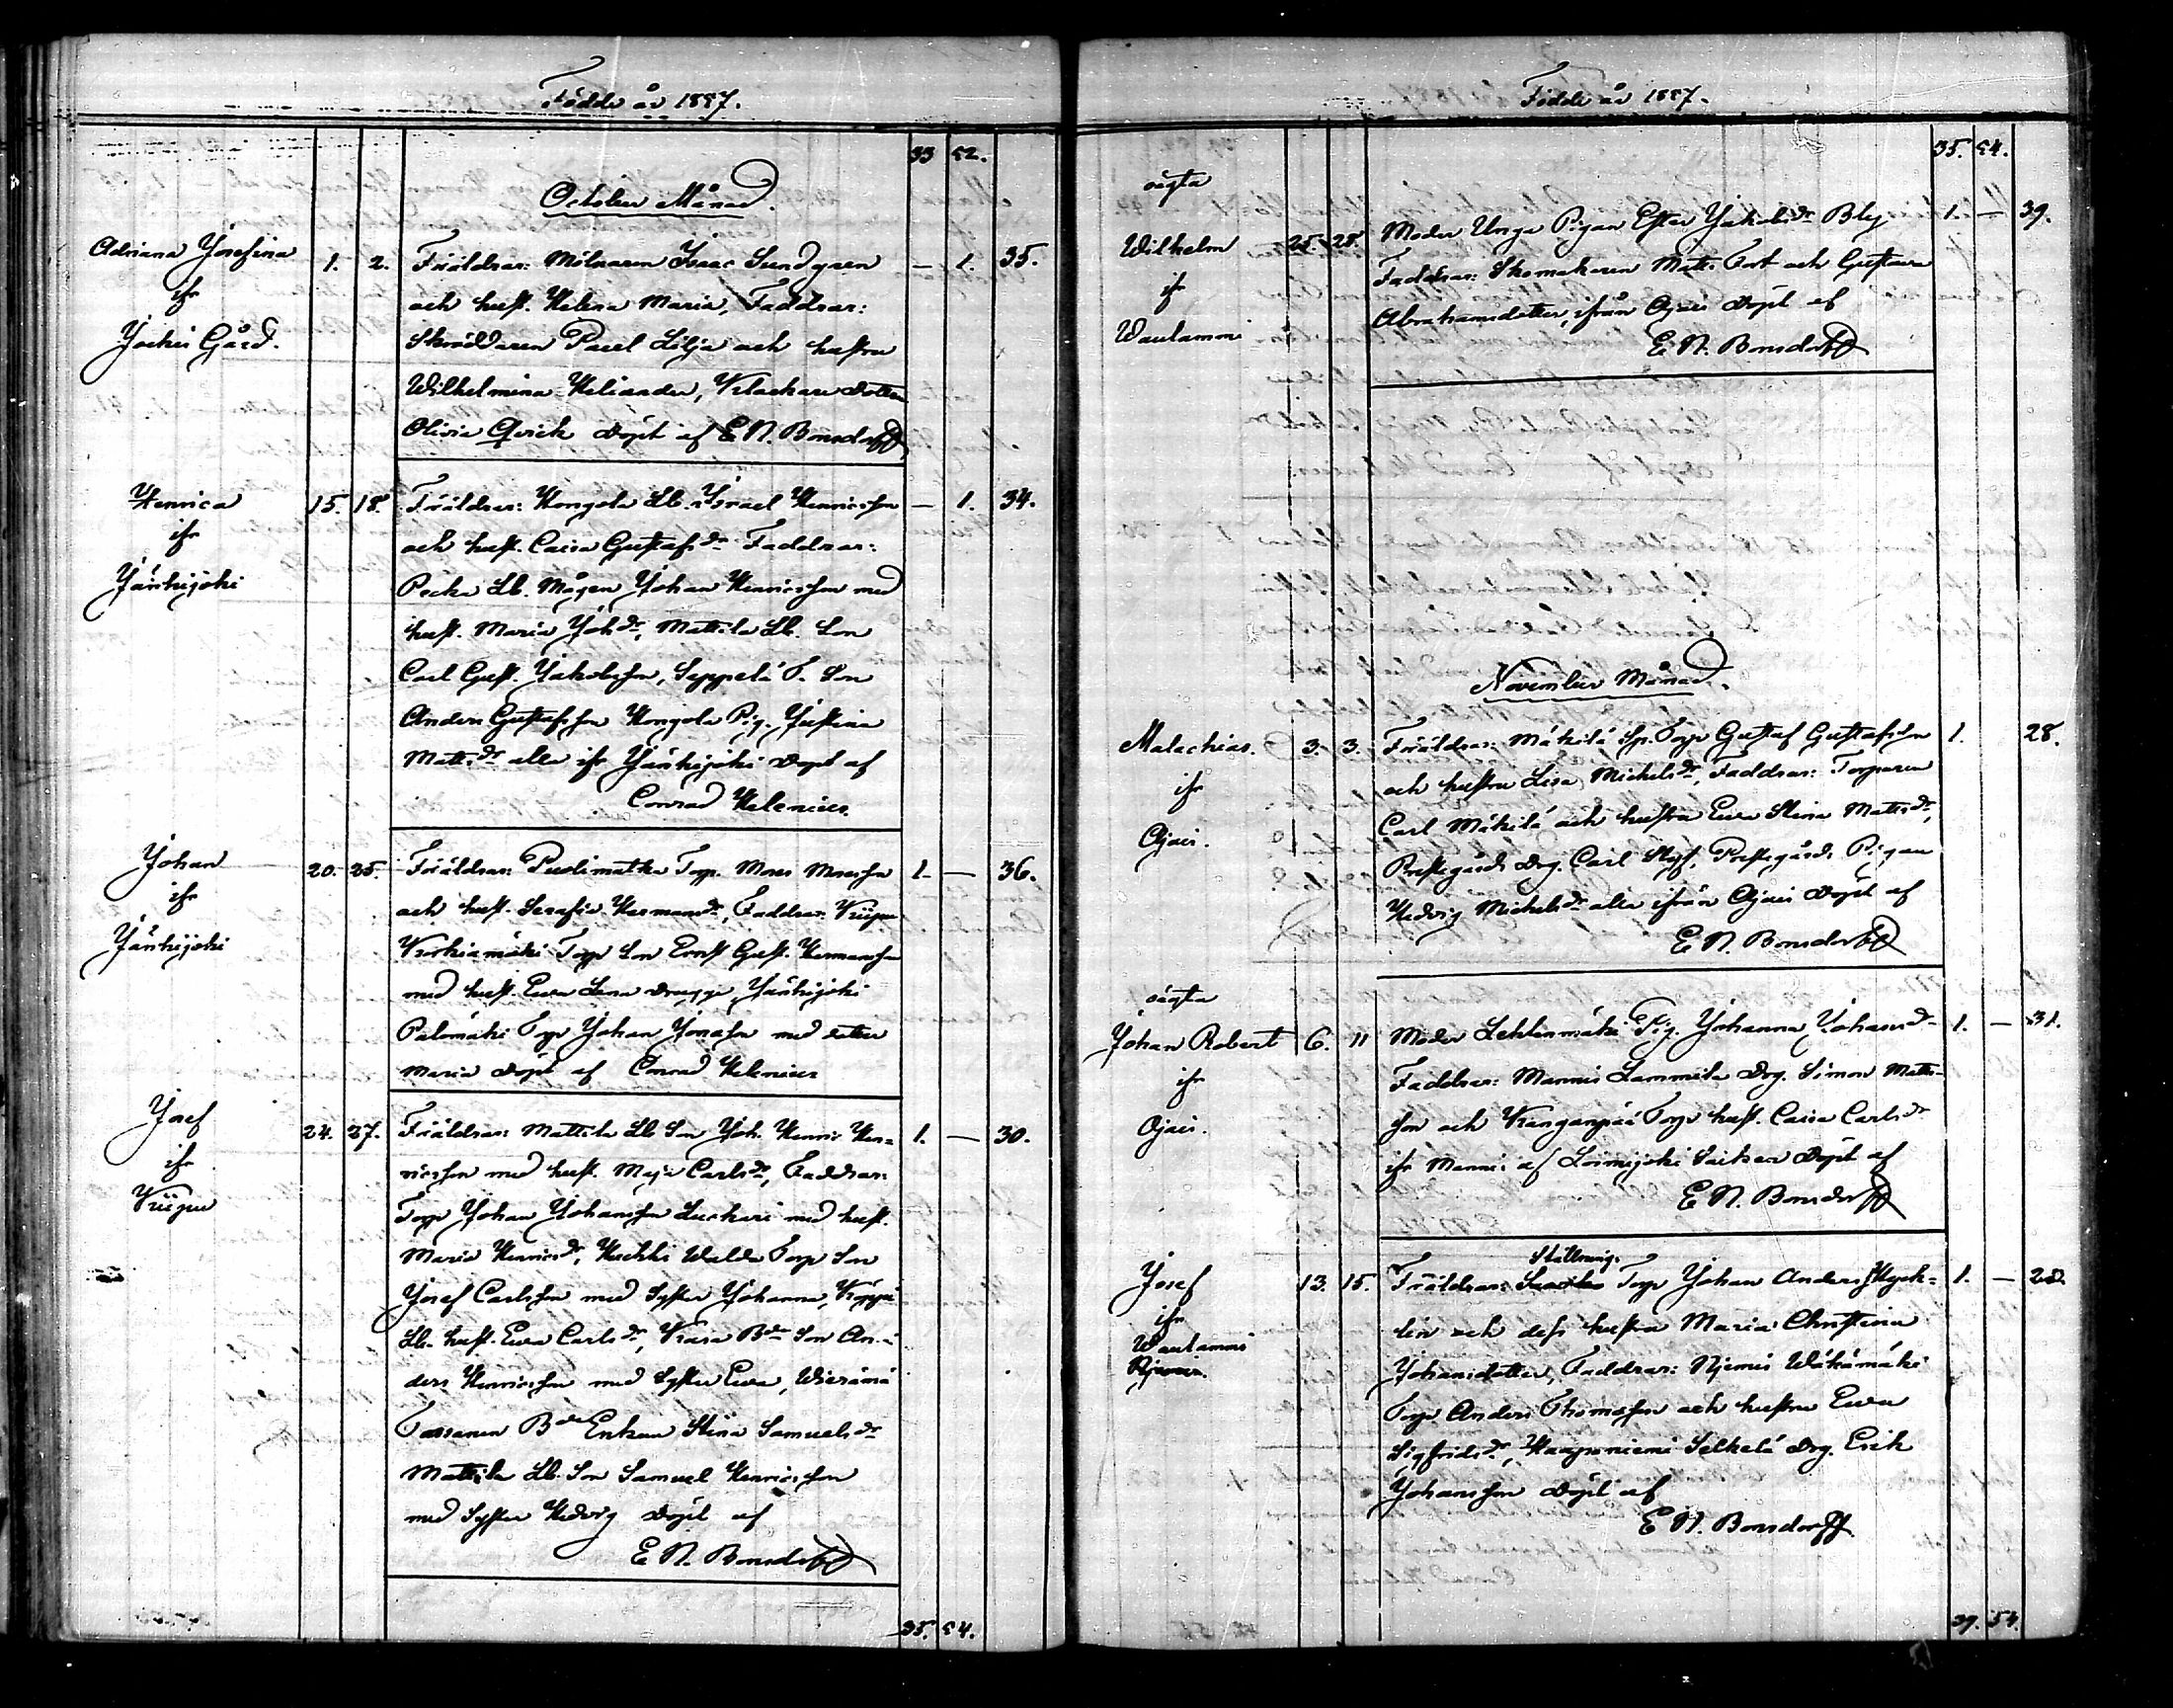 Födde år 1887.
33 52.
October Månad.
Adriana Josefina
ifr
Jockis Gård.
1. 2. Föräldrar: Mölnaren Isaac Sundgren — 1. 35.
och hust. Helena Maria, Faddrar:
Skräddaren Paul Lilja och hustru
Wilhelmina Heliander, Klockare Dotter
Olivia Qvick Döpt af E N. Bonsdorff
Henrica
ifr
Jänhijoki
15. 18. Föräldrar: Hongola Lb. Israel Henricsson — 1. 34.
och hust. Caisa Gustafsdr Faddrar:
Pecka Lb. Mågen Johan Henricsson med
hust. Maria Johdr, Mattila Lb. Son
Carl Gust. Jakobsson, Seppelä T. Son
Anders Gustafsson Hongola Pig. Justina
Mattsdr alla ifr Jänhijoki Döpt af
Conrad Helenius.
Johan
ifr
Jänhijoki
20. 25. Föräldrar: Puolimatka Torp. Moses Mosesson 1. — 36.
och hust. Serafia Hermansdr, Faddrar:
Torp Son Ernst Gust. Hermansson
med hust. Eva Lena Jänhijoki
Palomäki Torp Johan Jonasson med dotter
Maria Döpt af Conrad Helenius
Josef
ifr
24. 27. Föräldrar: Mattila Lb Son Joh. Henric Hen- 1. — 30.
ricsson med hust. Maja Carlsdr, Faddrar:
Torp Johan Johansson med hust.
Maria Henricsdr, Torp Son
Josef Carlsson med Syster Johanna,
Lb. hust. Eva Carlsdr, Son An-
ders Henricsson med Syster Eva,
Enkan Stina Samuelsdr
Mattila Lb. Son Samuel Henricsson
med Syster Hedvig Döpt af
E N. Bonsdorff
35. 54.
Födde år 1887.
35. 54.
oägta
Wilhelm
ifr
Waulammi
25. 28. Moder Unga Pigan Ester Jakobsdr Bly 1. — 39.
Faddrar: Skomakaren Matts Fort och Gustava
Abrahamsdotter, ifrån Ojais Döpt af
E N. Bonsdorff
November Månad.
Malachias.
ifr
Ojais.
3. 3. Föräldrar: Mäkilä Sp. Torp Gustaf Gustafsson 1. 28.
och hustru Lisa Michelsdr, Faddrar: Torparen
Carl Mäkilä och hustru Eva Stina Mattsdr,
Prestgårds Drg. Carl Styf, Prestgårds Pigan
Hedvig Michelsdr alla ifrån Ojais Döpt af
E N. Bonsdorff
oägta
Johan Robert
ifr
Ojais.
6. 11 Moder Lehtenmäki Pig. Johanna Johansdr 1. — 31.
Faddrar: Mannis Lammila Drg. Simon Matts-
son och Torp hust. Caisa Carlsdr
ifr Mannis af Loimijoki Socken Döpt af
E N. Bonsdorff
Josef
ifr
Waulammi
Ställning.
13. 15. Föräldrar: Torp Johan Anders Hyck- 1. — 28.
lin och dess hustru Maria Christina
Johansdotter, Faddrar: Niemis Wähämäki
Torp Anders Thomasson och hustru Eva
Sigfridsdr, Haapaniemi Selkelä Drg. Erik
Johansson Döpt af
E N. Bonsdorff
39. 54.